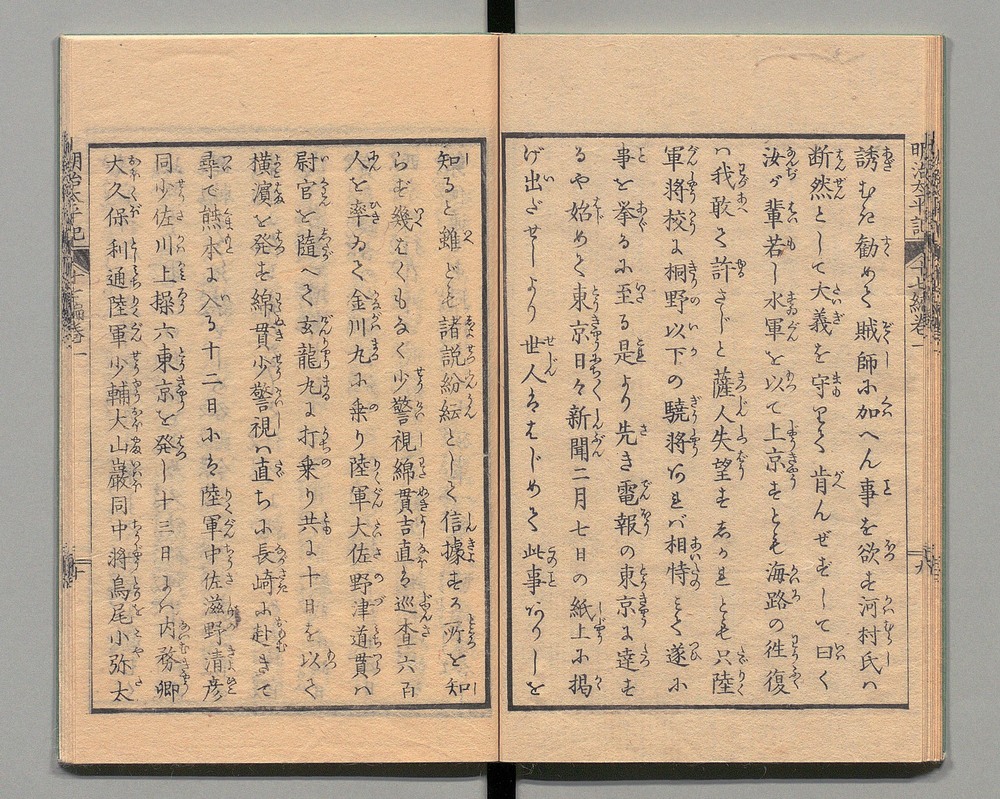 明治太平記 十七編巻一
誘むを勧めて賊師に加へん事を欲す河村氏ハ
断然として大義を守りて肯んぜずして曰く
汝が輩若し水軍を以て上京すとも海路の往復
ハ我敢て許さじと薩人失望すしかれとも只陸
軍将校に桐野以下の驍将あれバ相恃とて遂に
事を挙るに至る是より先き電報の東京に達す
るや始めて東京日々新聞二月七日の紙上に掲
げ出だせしより世人はじめて此事ありしを
知ると雖ども諸説紛紜として信據する所を知
らず幾もなく少警視綿貫吉直ハ巡査六百
人を率ゐて金川丸に乗り陸軍大佐野津道貫ハ
尉官を随へて玄龍丸に打乗り共に十日を以て
横濱を発す綿貫少警視ハ直ちに長崎に赴きて
尋で熊本に入る十二日にハ陸軍中佐滋野清彦
同少佐川上操六東京を発し十三日にハ内務卿
大久保利通陸軍少輔大山巌同中将鳥尾小弥太
明治太平記 十七編巻一